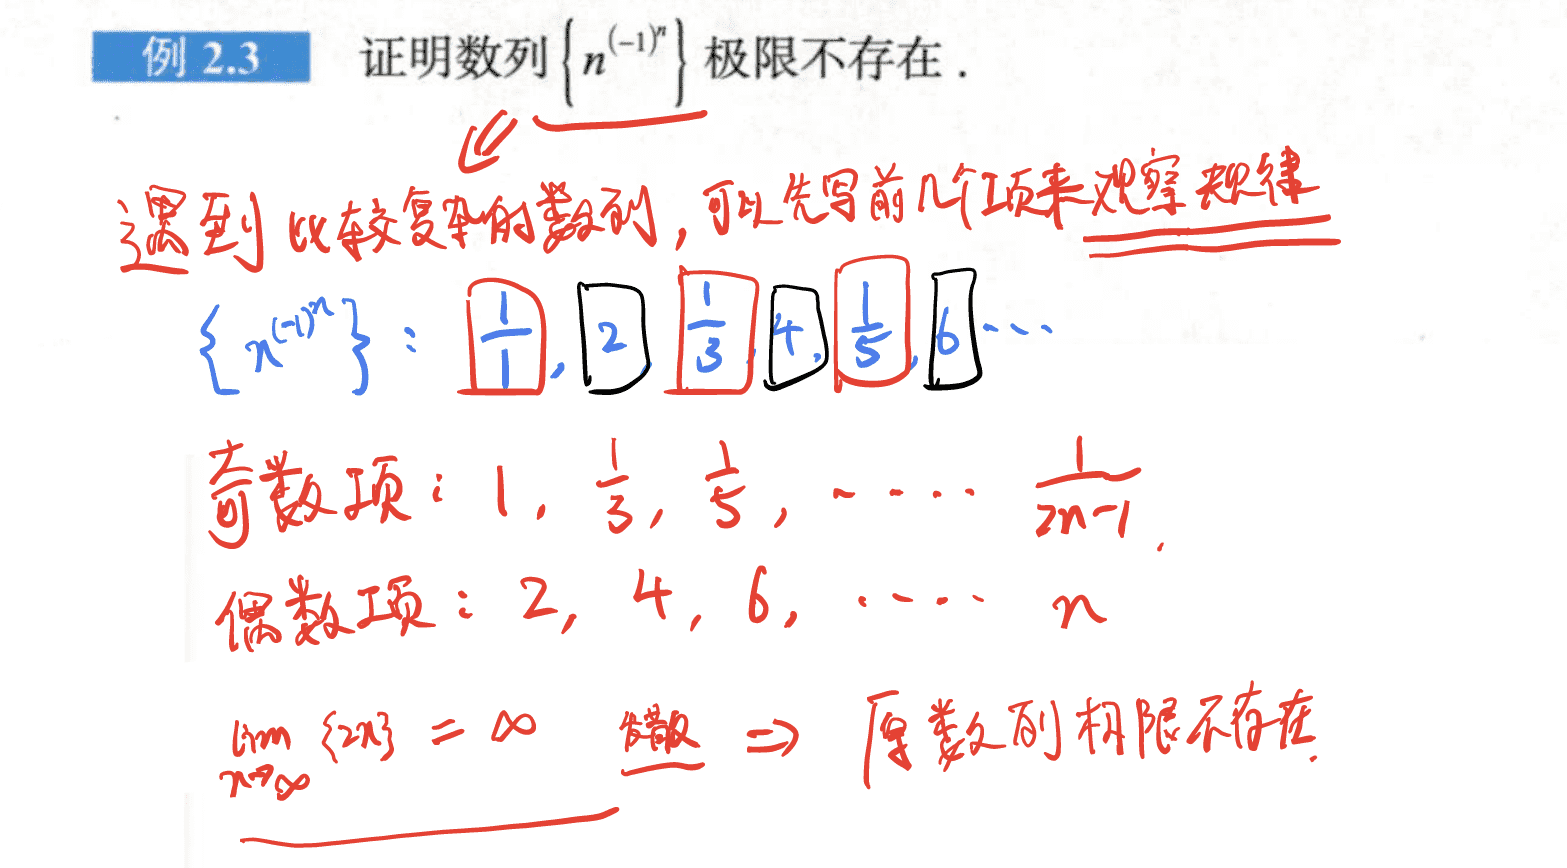 例 2.3 证明数列{n^(-1)^n}极限不存在.
遇到比较复杂的数列,可以先写前几个项来观察规律
{n^(-1)^n}: 1/1, 2, 1/3, 4, 1/5, 6 ...
奇数项: 1, 1/3, 1/5, ..... 1/(2n-1).
偶数项: 2, 4, 6, ..... n
lim n→∞ {2n} = ∞ 发散 ⇒ 原数列极限不存在.